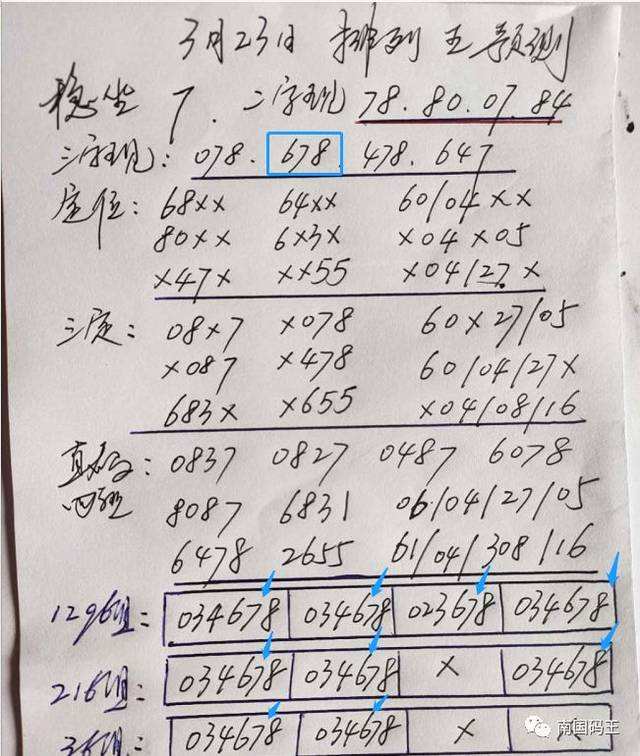 3月23日 排列五预测
稳坐 7. 二字现 78.80.07.84
三字现: 078. 678. 478. 647
定位: 68×× 64×× 60/04××
80×× 6×3× ×04×05
×47× ××55 ×04/27×
三定: 08×7 ×078 60×27/05
×087 ×478 60/04/27×
683× ×655 ×04/08/16
直码: 0837 0827 0487 6078
8087 6831 06/04/27/05
6478 2655 61/04/308/16
1296组: 034678 034678 023678 034678
216组: 034678 034678 × 034678
36组: 034678 034678 ×
南国码王